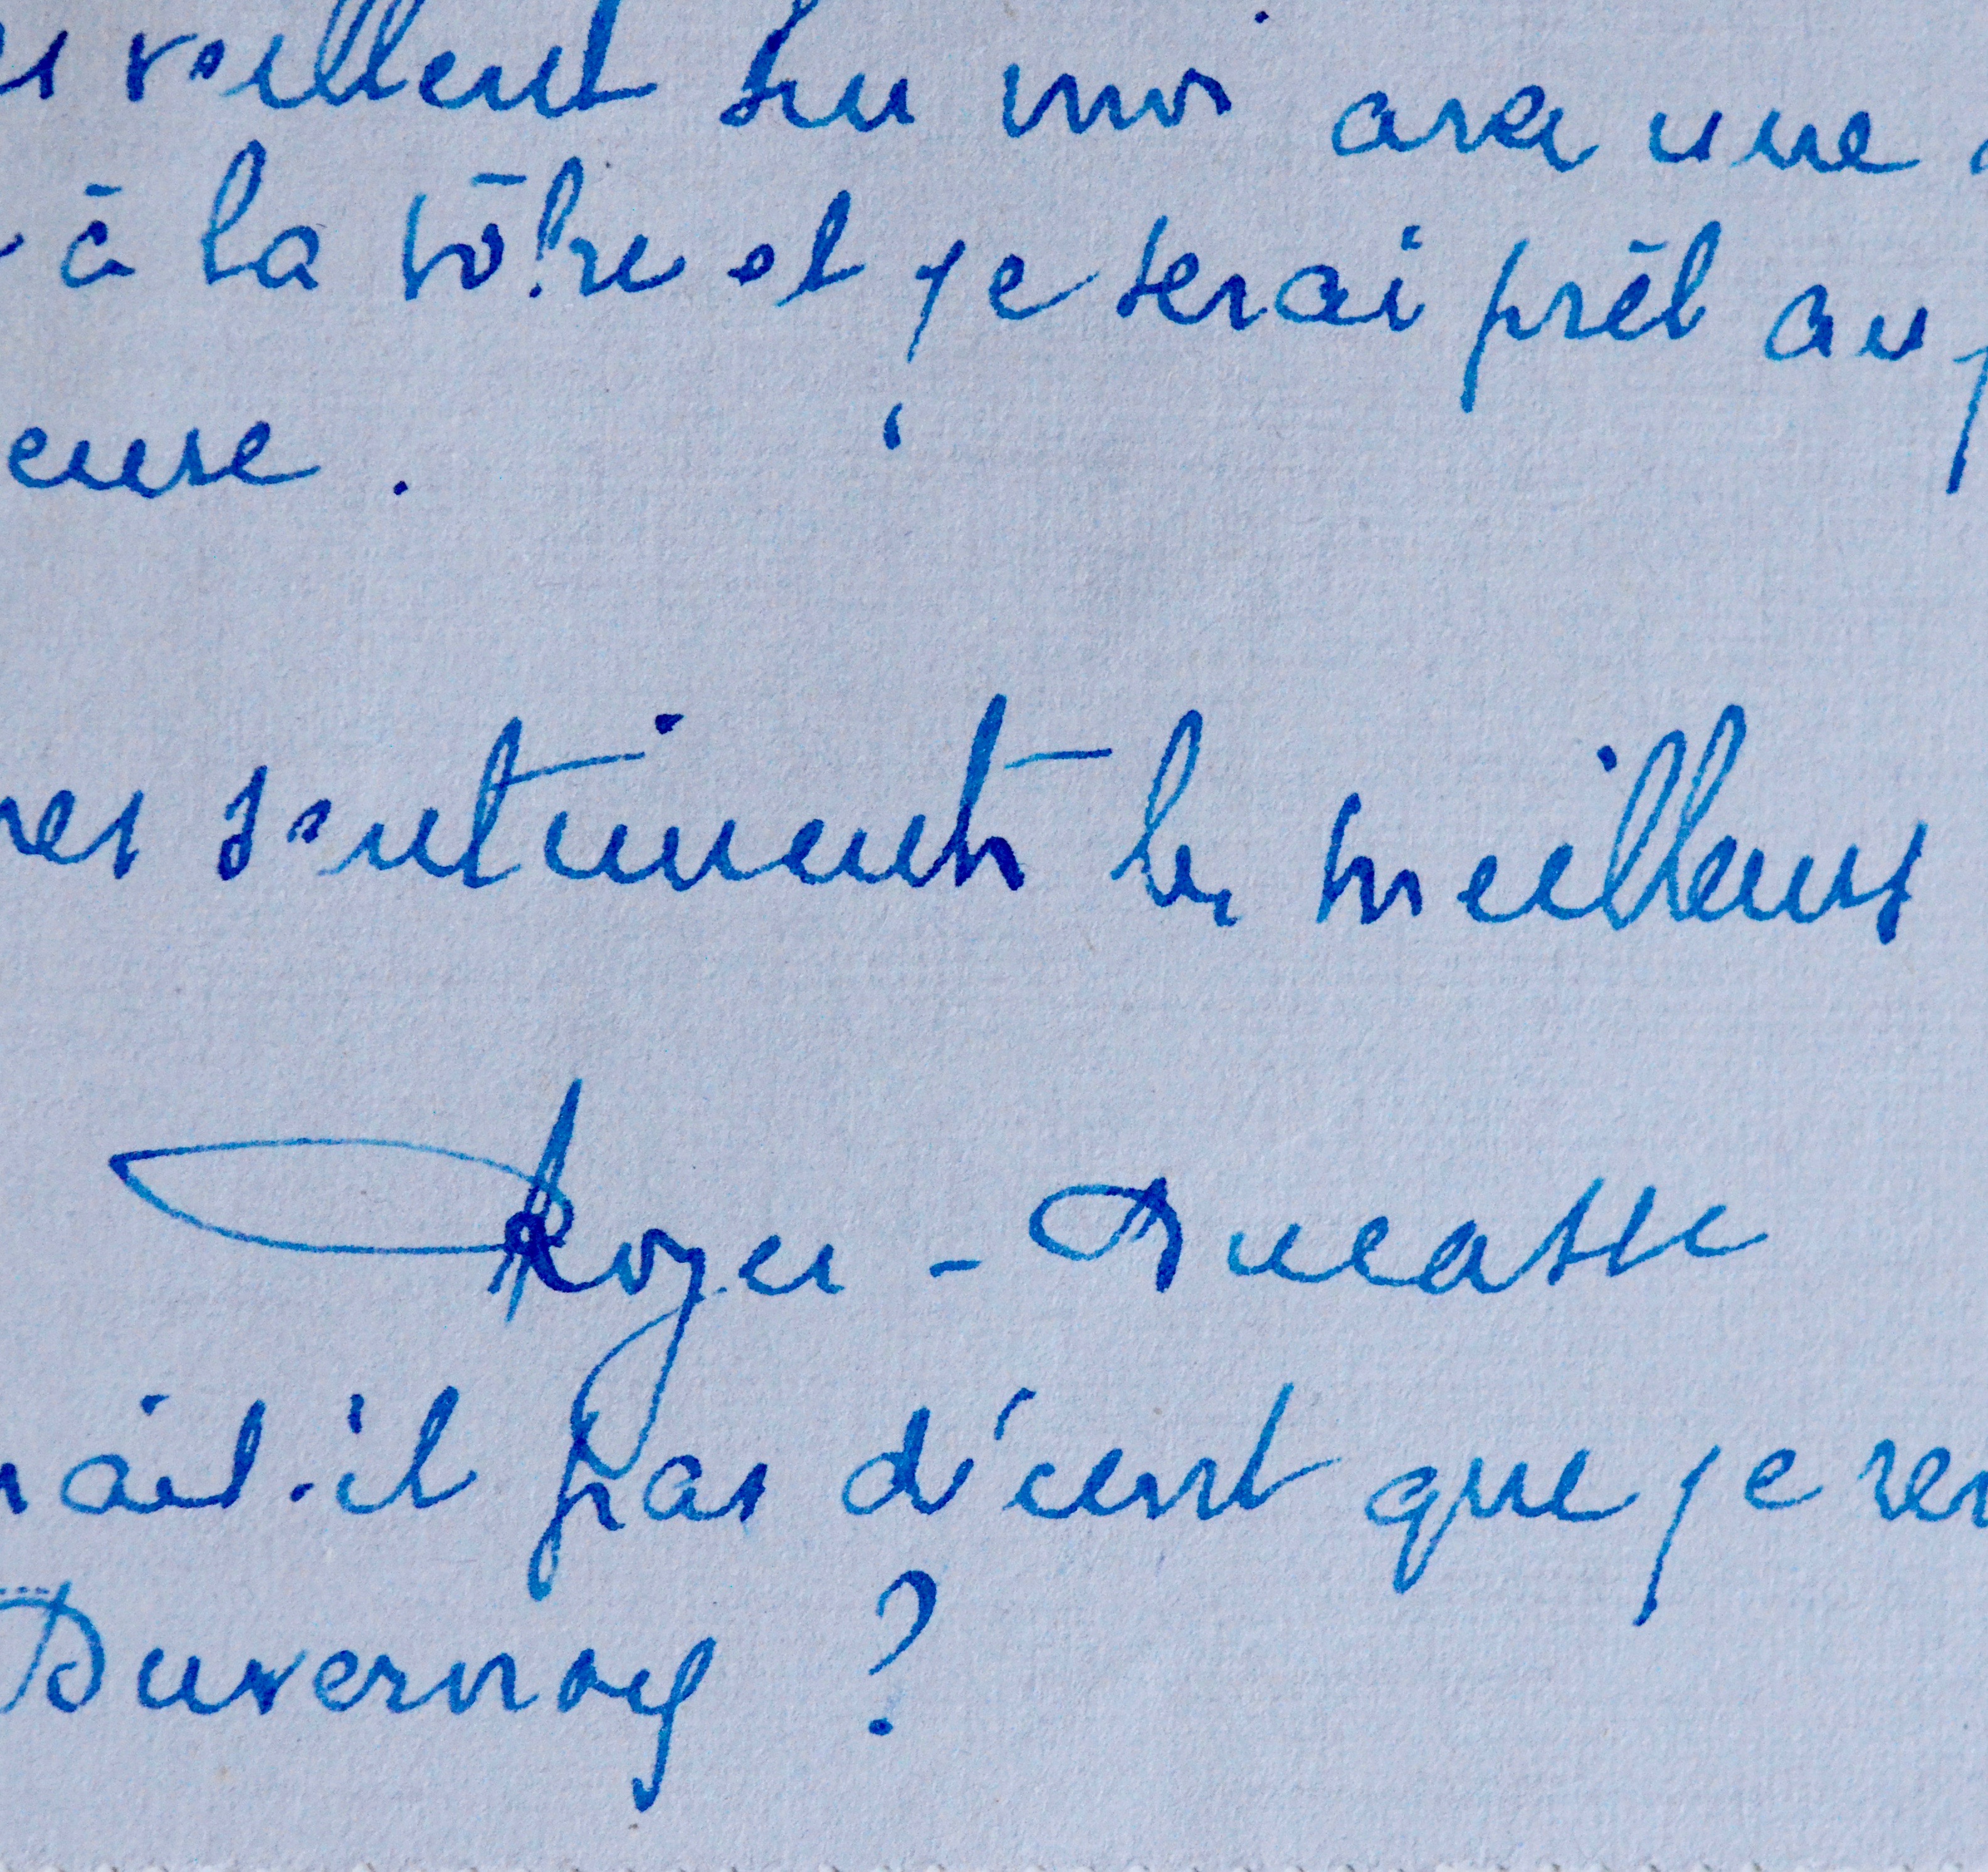 veillent sur moi avec une
à la vôtre et je serai prêt au
euse.
mes sentiments les meilleurs
Roger-Ducasse
ait-il pas décent que je
Duvernoy ?